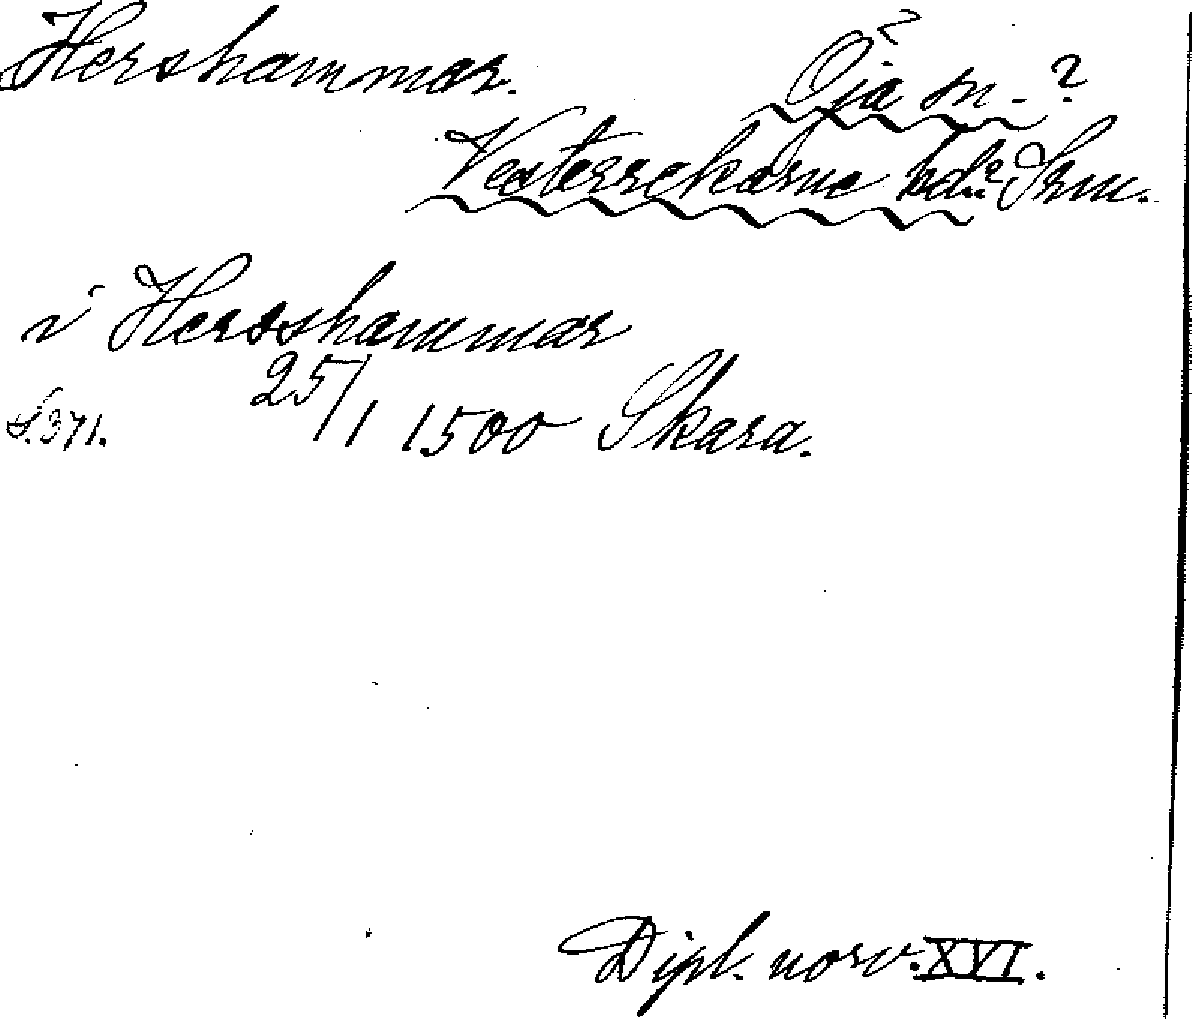 Hershammar. Öja sn. ?
Vesterrekarne hd? Srm.
i Hersshammar
S. 371. 25/1 1500 Skara.
Dipl. norv. XVI.